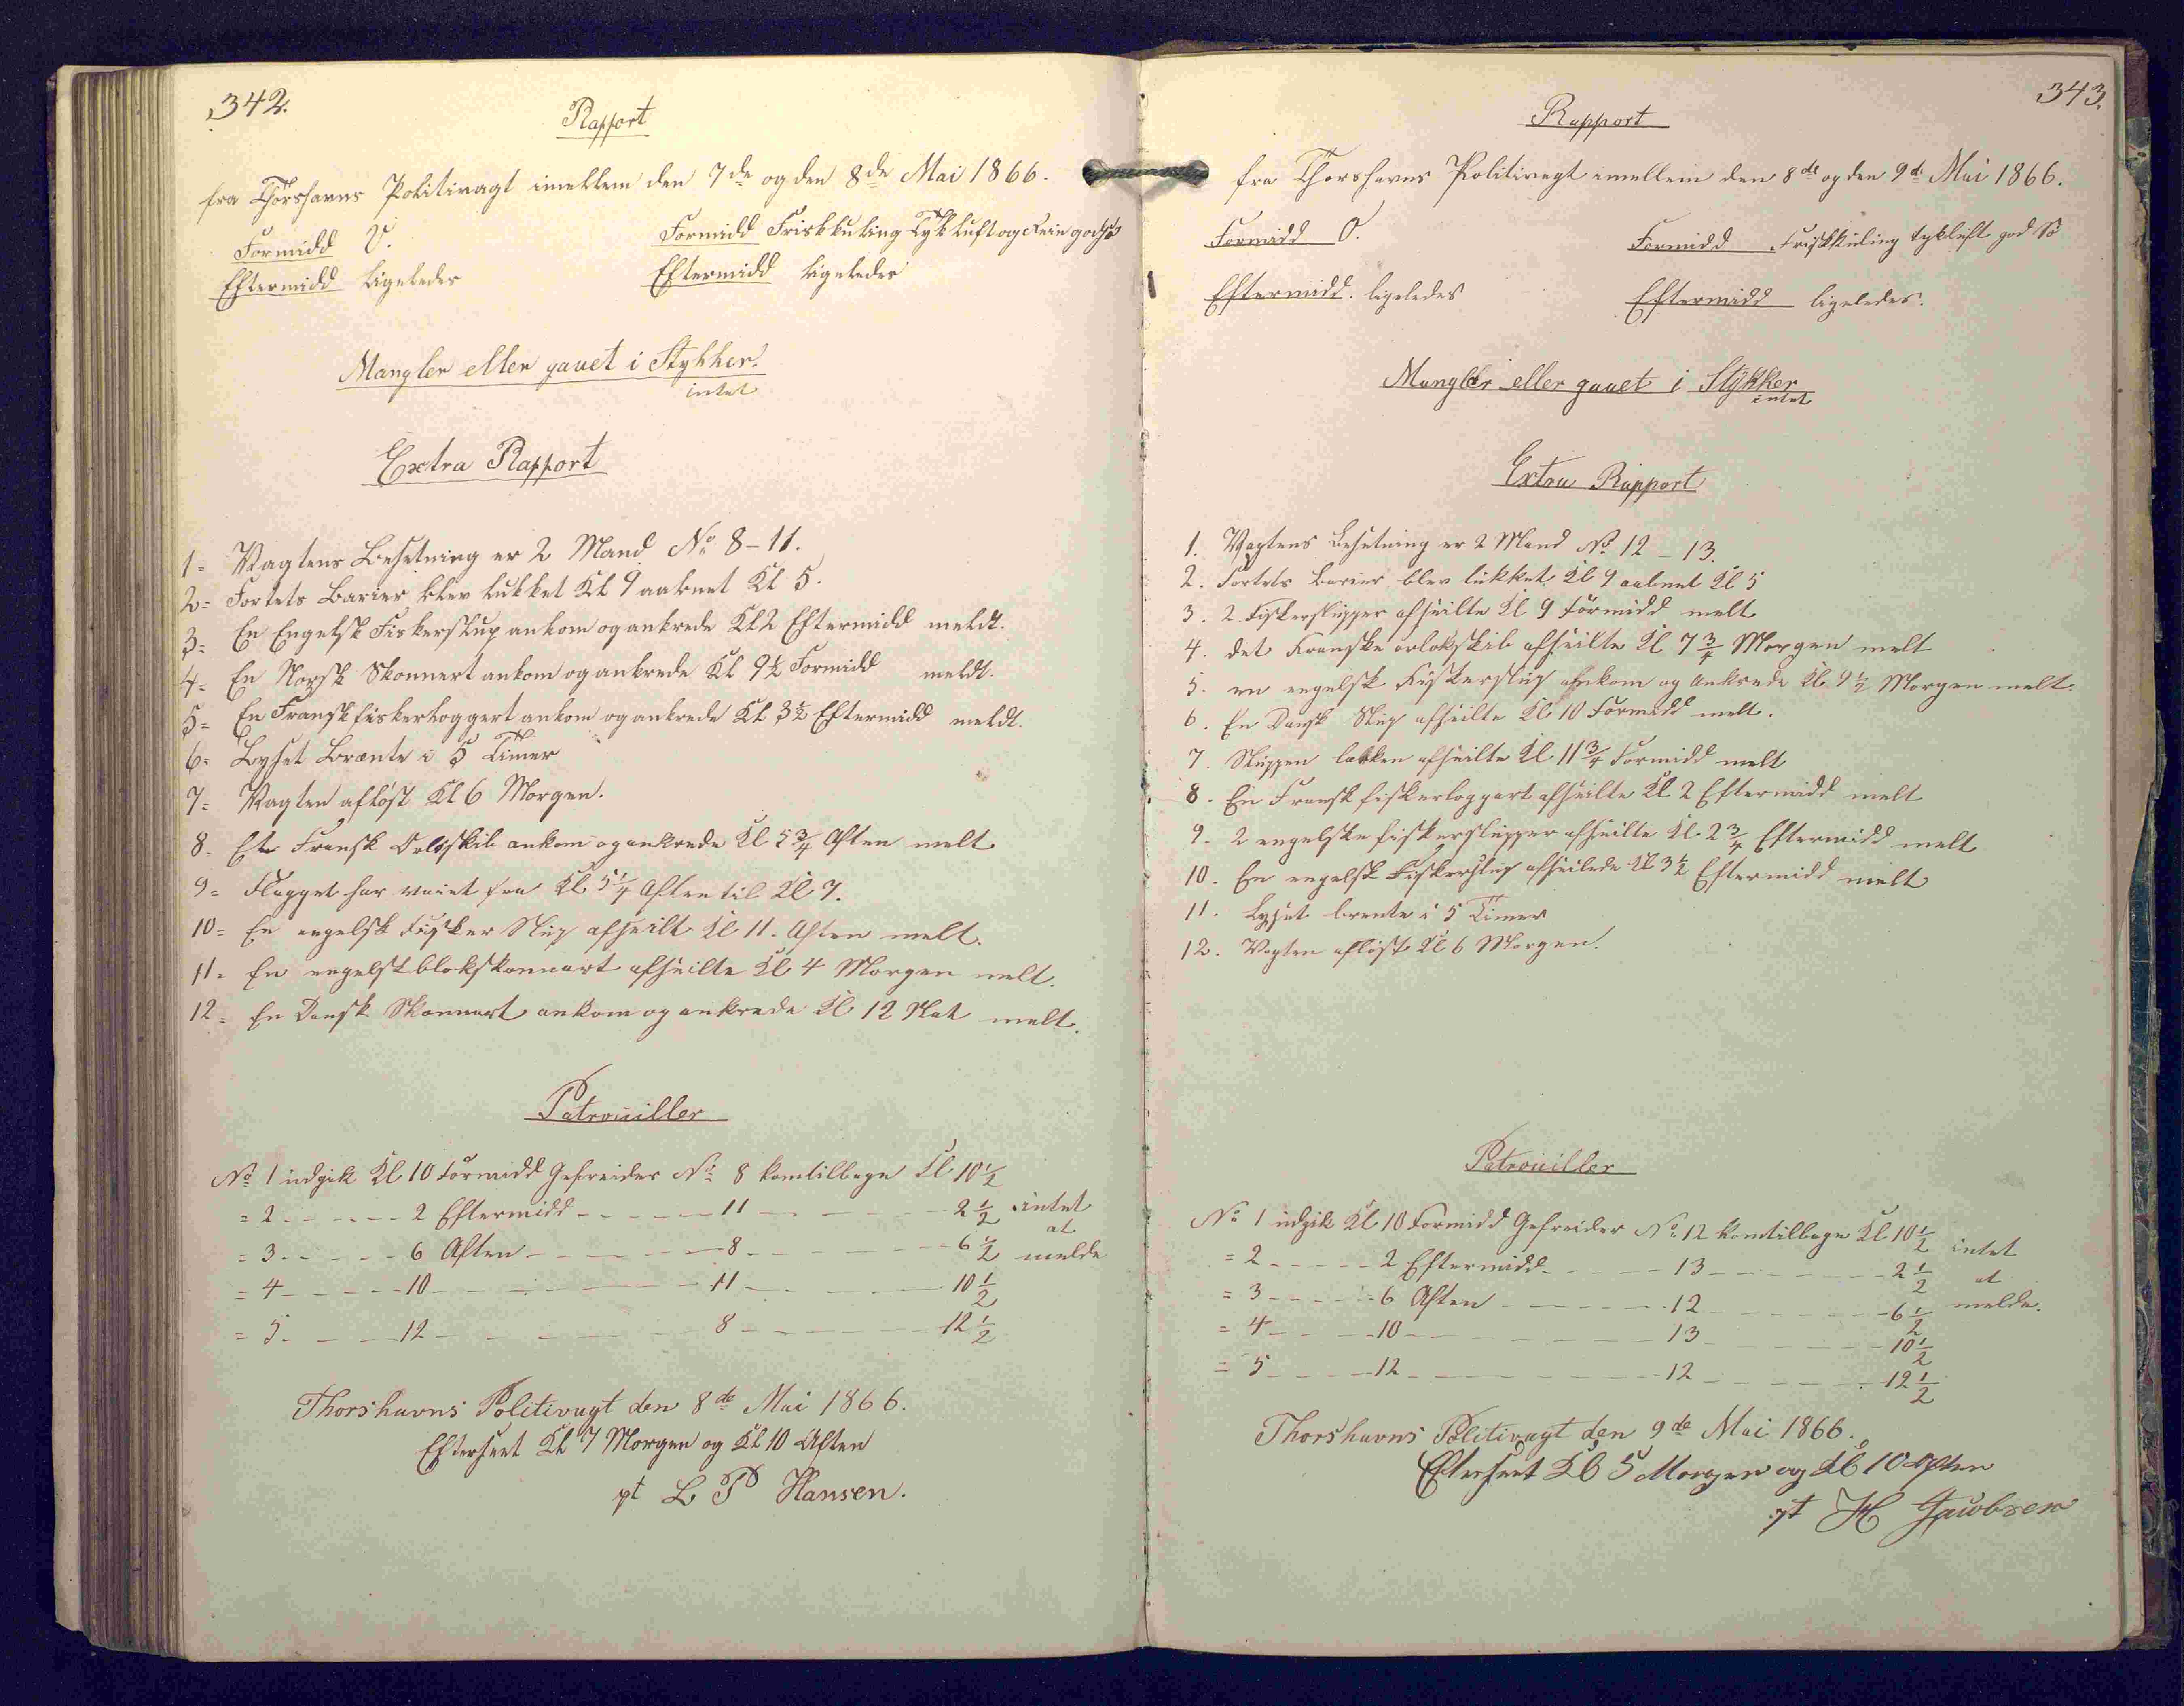 342.
Rapport
fra Thorshavns Politivagt imellem den 7de og den 8de Mai 1866.
Formidd V. Formidd Friskkuling Tykluft og Rein god sö
Eftermidd ligeledes Eftermidd ligeledes
Mangler eller gaaet i Stykker.
intet
Extra Rapport
1= Vagtens Besetning er 2 Mand No 8-11.
2= Fortets Barier blev lukket Kl 9 aabnet Kl 5.
3= En Engelsk Fiskerslup ankom og ankrede Kl 2 Eftermidd meldt.
4= En Norsk Skonnert ankom og ankrede Kl 9½ Formidd meldt.
5= En Fransk fiskerloggert ankom og ankrede Kl 3½ Eftermidd meldt.
6= Lyset Brænte i 5 Timer
7= Vagten aflöst Kl 6 Morgen.
8= Et Fransk Orlogskib ankom og ankrede Kl 5¾ Aften melt
9= Flagget har vaiet fra Kl 5¼ Aften til Kl 7.
10= En engelsk Fisker Slup afseilt Kl 11. Aften melt.
11= En engelsk blokskonnart afseilte Kl 4 Morgen melt.
12= En Dansk Skonnart ankom og ankrede Kl 12 Nat melt.
Patrouiller
No 1 udgik Kl 10 Formidd Gefreider No 8 kom tilbage Kl 10½
= 2 - - - - - 2 Eftermidd - - - - - 11 - - - - - 2½ intet
at
= 3 - - - - - 6 Aften - - - - - 8 - - - - - 6½ melde
= 4 - - - - - 10 - - - - - 11 - - - - - 10½
= 5 - - - - - 12 - - - - - 8 - - - - - 12½
Thorshavns Politivagt den 8de Mai 1866.
Efterseet Kl 7 Morgen og Kl 10 Aften
pt L P Hansen.
343.
Rapport
fra Thorshavns Politivagt imellem den 8de og den 9de Mai 1866.
Formidd O. Formidd Friskkuling tykluft god Sö
Eftermidd. ligeledes Eftermidd ligeledes.
Mangler eller gaaet i Stykker
intet
Extra Rapport
1. Vagtens Besetning er 2 Mand No 12 - 13.
2. Fortets Barier blev lukket Kl 9 aabnet Kl 5
3. 2 Fiskerslupper afseilte Kl 9 Formidd melt
4. det Franske orlokskib afseilte Kl 7¾ Morgen melt
5. en engelsk Fiskerslup ankom og Ankrede Kl 9½ Morgen melt.
6. En Dansk Slup afseilte Kl 10 Formidd melt.
7. Sluppen afseilte Kl 11¾ Formidd melt
8. En Fransk fiskerloggart afseilte Kl 2 Eftermidd melt
9. 2 engelske fiskerslupper afseilte Kl. 2¾ Eftermidd melt
10. En engelsk Fiskerslup afseilede Kl 3½ Eftermidd melt
11. Lyset brente i 5 Timer
12. Vagten aflöst Kl 6 Morgen.
Patrouiller
No 1 udgik Kl 10 Formidd Gefreider No 12 kom tilbage Kl 10½ intet
= 2 - - - - - 2 Eftermidd - - - - - 13 - - - - - 2½ at
= 3 - - - - - 6 Aften - - - - - 12 - - - - - 6½ melde.
= 4 - - - - - 10 - - - - - 13 - - - - - 10½
= 5 - - - - - 12 - - - - - 12 - - - - - 12½
Thorshavns Politivagt den 9de Mai 1866.
Efterseet Kl 5 Morgen og Kl 10 Aften
pt H Jacobsen